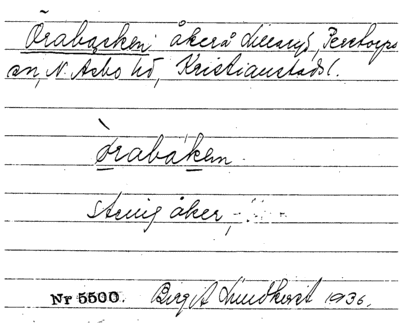 Örabacken åkrar Lillaryd, Perstorps
sn, N. Åsbo hd, Kristianstads l.
òrabàken
stenig åker,
Nr 5500. Birgit Lindkvist 1936.